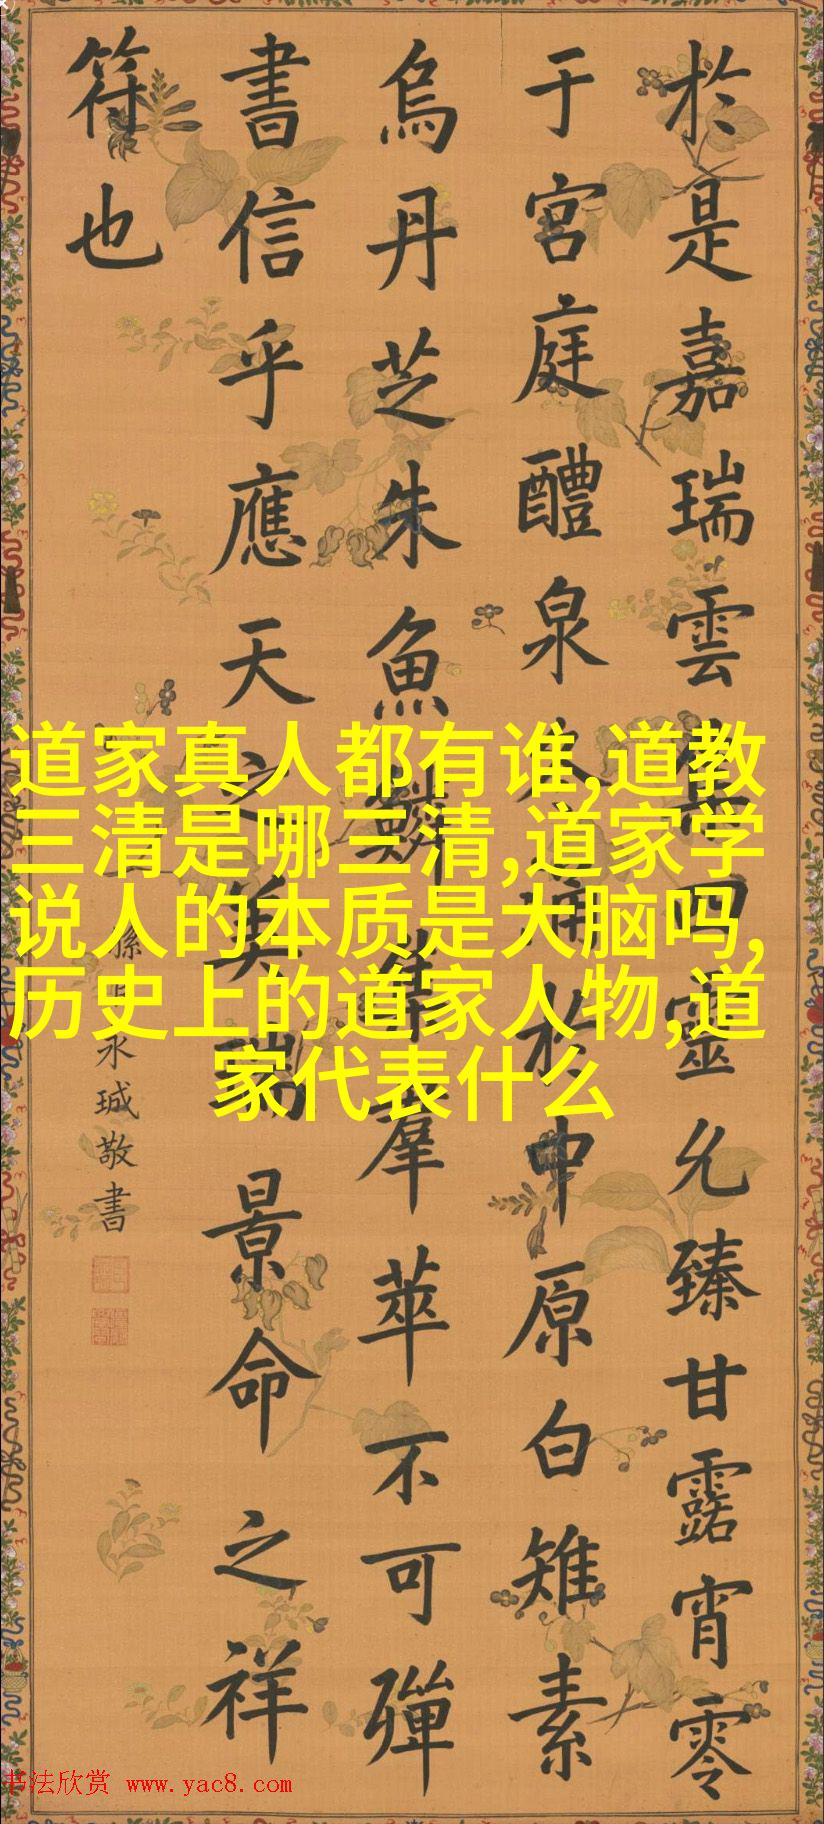 於是嘉瑞雲四靈允臻甘露宵零
于宮庭醴泉涌於中原白雉素
烏丹芝朱魚鱗集羣萃不可殫
書信乎應天之美瑞景命之祥
符也
孫臣永珹敬書
道家真人都有谁,道教
三清是哪三清,道家学
说人的本质是大脑吗,
历史上的道家人物,道
家代表什么
书法欣赏 www.yac8.com